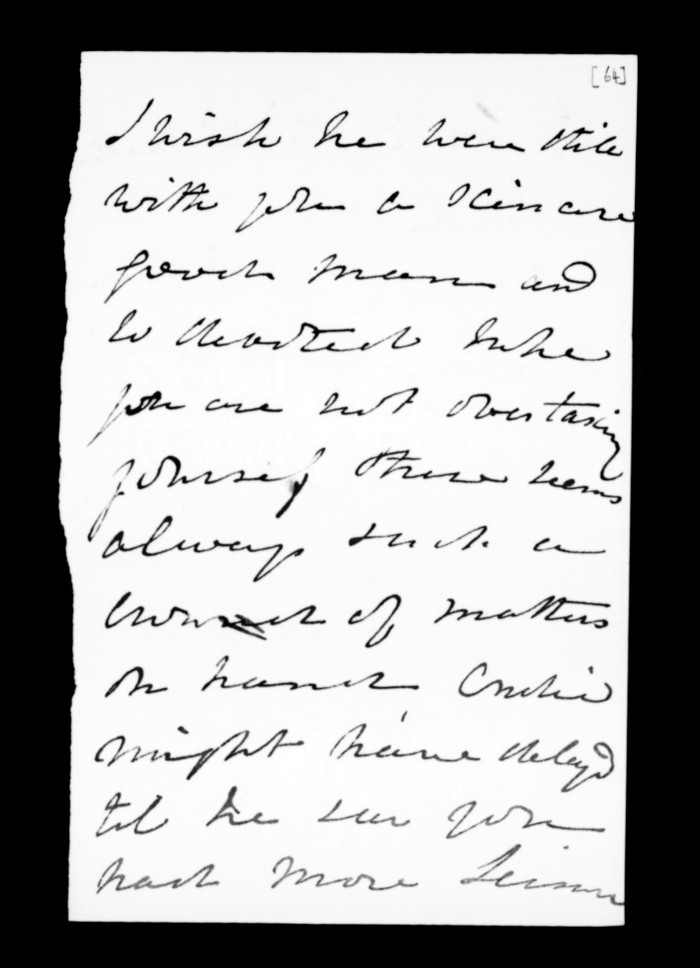 [64]
I wish he were still
with you a sincere
good man and
so devoted I hope
you are not overtasking
yourself there seems
always such a
crowd of matters
on hand
might have delayd
til he saw you
had more leisure